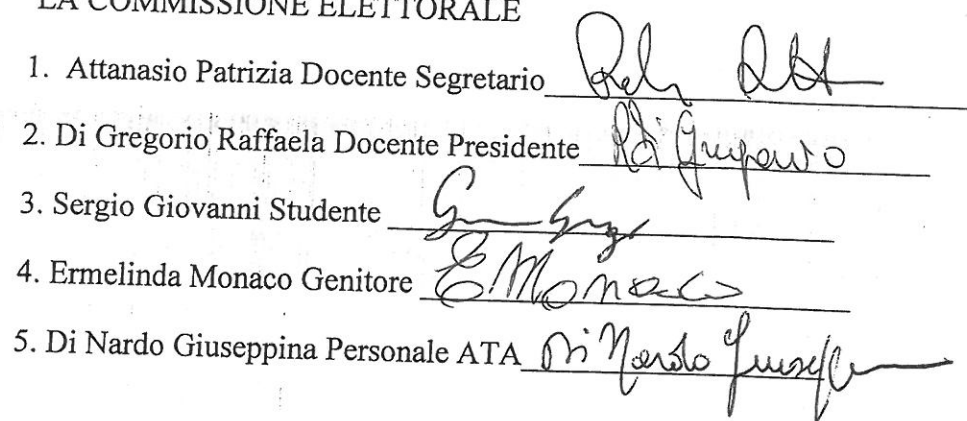 LA COMMISSIONE ELETTORALE
1. Attanasio Patrizia Docente Segretario
2. Di Gregorio Raffaela Docente Presidente R Di Gregorio
3. Sergio Giovanni Studente
4. Ermelinda Monaco Genitore E. Monaco
5. Di Nardo Giuseppina Personale ATA Di Nardo